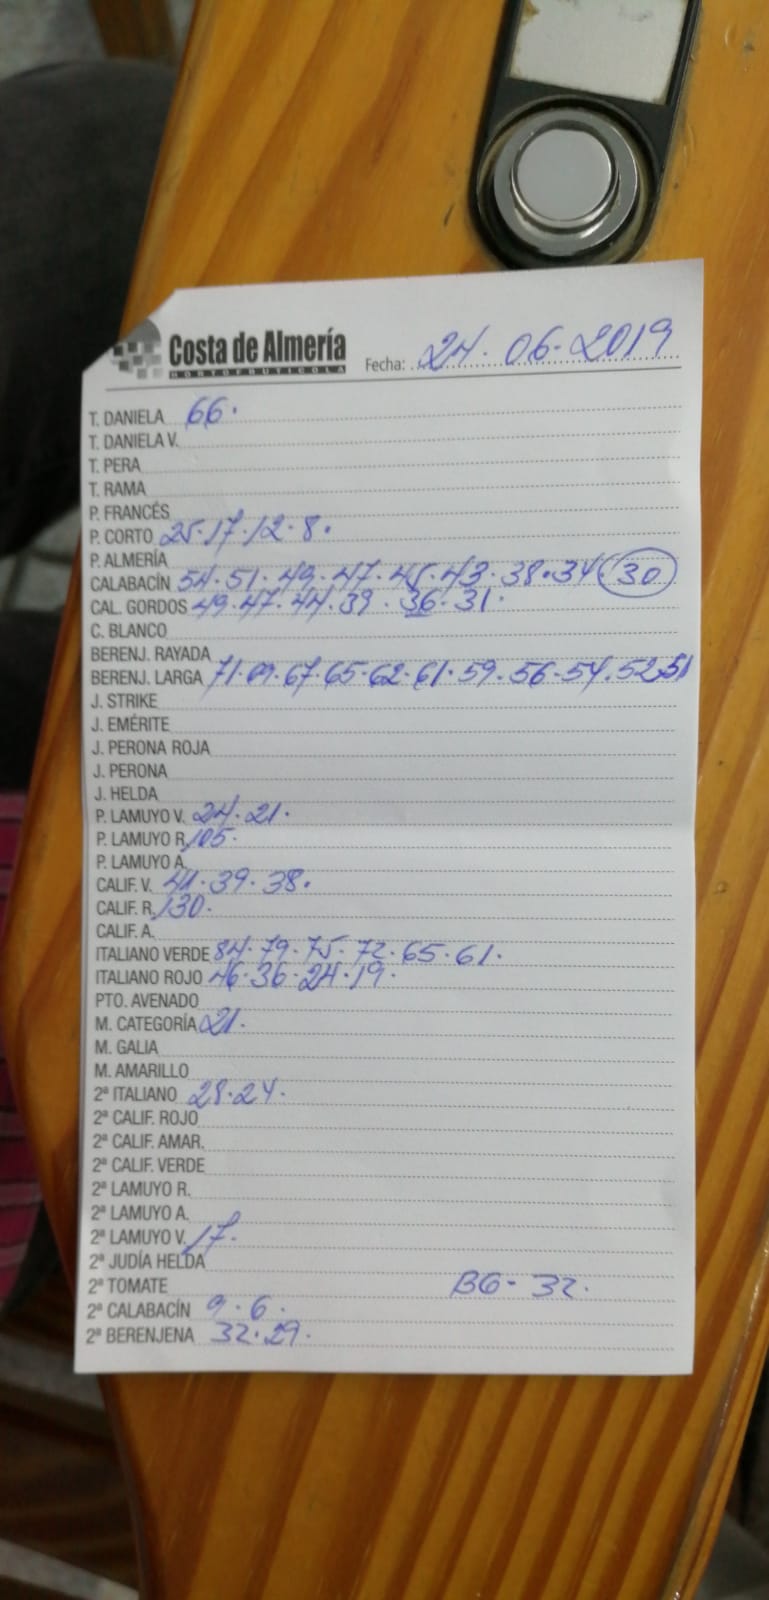 Costa de Almería
HORTOFRUTICOLA
Fecha: 24.06.2019
T. DANIELA 66.
T. DANIELA V.
T. PERA
T. RAMA
P. FRANCÉS
P. CORTO 25.17.12.8.
P. ALMERÍA
CALABACÍN 54.51.49.47.45.43.38.34 30
CAL. GORDOS 49.47.44.39.36.31.
C. BLANCO
BERENJ. RAYADA
BERENJ. LARGA 71.69.67.65.62.61.59.56.54.52.51
J. STRIKE
J. EMÉRITE
J. PERONA ROJA
J. PERONA
J. HELDA
P. LAMUYO V. 24.21.
P. LAMUYO R. 105.
P. LAMUYO A.
CALIF. V. 41.39.38.
CALIF. R. 130.
CALIF. A.
ITALIANO VERDE 84.79.75.72.65.61.
ITALIANO ROJO 46.36.24.19.
PTO. AVENADO
M. CATEGORÍA 21.
M. GALIA
M. AMARILLO
2ª ITALIANO 28.24.
2ª CALIF. ROJO
2ª CALIF. AMAR.
2ª CALIF. VERDE
2ª LAMUYO R.
2ª LAMUYO A.
2ª LAMUYO V. 17.
2ª JUDÍA HELDA
2ª TOMATE BG-32.
2ª CALABACÍN 9.6.
2ª BERENJENA 32.29.